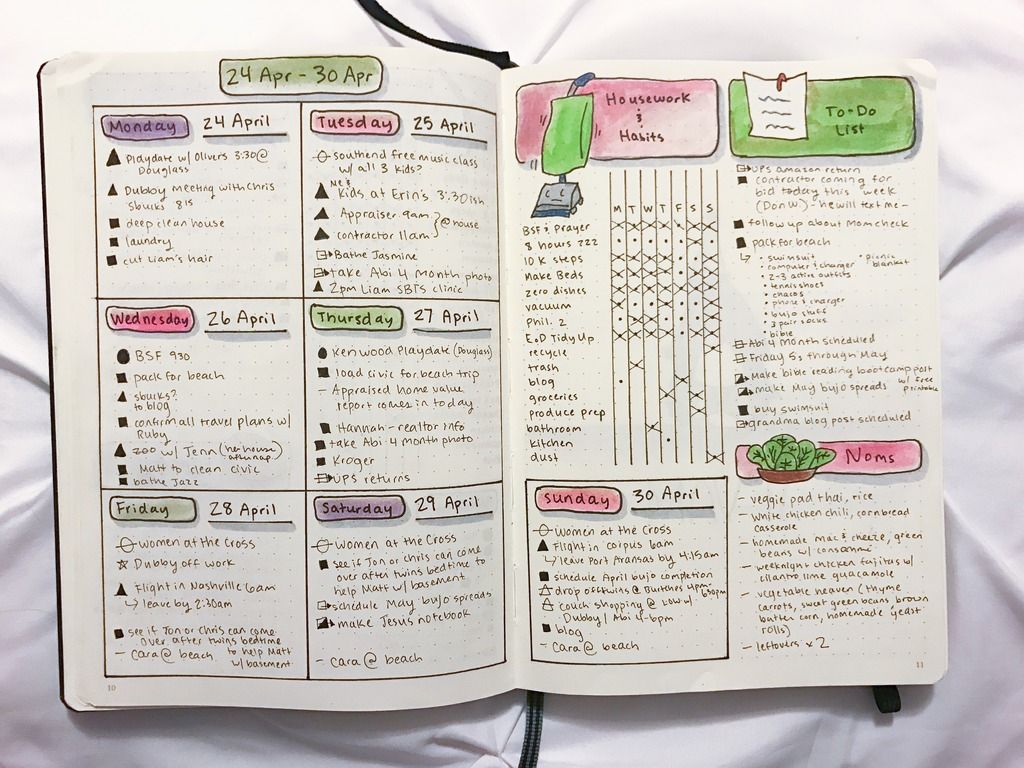 24 Apr - 30 Apr
Monday 24 April
Playdate w/ Olivers 3:30@
Douglass
Dubby meeting with Chris
sbucks 815
deep clean house
laundry
cut Liam's hair
Tuesday 25 April
southend free music class
w/ all 3 kids?
me &
Kids at Erin's 3:30ish
Appraiser 9am
contractor 11am } @ house
Bathe Jasmine
take Abi 4 month photo
2pm Liam SBTS clinic
Wednesday 26 April
BSF 930
pack for beach
sbucks?
to blog
confirm all travel plans w/
Ruby
zoo w/ Jenn (her house)
after nap
Matt to clean civic
bathe Jazz
Thursday 27 April
Kenwood Playdate (Douglass)
load civic for beach trip
- Appraised home value
report comes in today
Hannah - realtor info
take Abi 4 month photo
Kroger
UPS returns
Friday 28 April
women at the Cross
Dubby off work
Flight in Nashville 6am
↳ leave by 2:30am
see if Jon or Chris can come
over after twins bedtime
to help Matt
w/ basement
- Cara @ beach
Saturday 29 April
women at the Cross
see if Jon or Chris can come
over after twins bedtime to
help Matt w/ basement
schedule May bujo spreads
make Jesus notebook
- Cara @ beach
10
Housework
&
Habits
M T W T F S S
BSF & Prayer
8 hours zzz
10 K steps
Make Beds
zero dishes
vacuum
Phil. 2
EoD Tidy Up
recycle
trash
blog
groceries
produce prep
bathroom
kitchen
dust
Sunday 30 April
women at the Cross
Flight in corpus 6am
↳ leave Port Aransas by 4:15am
schedule April bujo completion
drop off twins @ Butches 4pm-
630pm
couch shopping @ Low w/
Dubby/Abi 4-6pm
blog
- Cara @ beach
To-Do
List
UPS amazon return
contractor coming for
bid today this week
(Don W.) - he will text me -
follow up about Mom check
pack for beach
↳ • swimsuit • picnic
• computer & charger blanket
• 2-3 active outfits
• tennis shoes
• chacos
• phone & charger
• bujo stuff
• 3 pair socks
• bible
Abi 4 month scheduled
Friday 5s through May
Make bible reading bootcamp post
make May bujo spreads w/ free
printable
buy swimsuit
grandma blog post scheduled
Noms
- veggie pad thai, rice
- white chicken chili, cornbread
casserole
- homemade mac & cheeze, green
beans w/ consommé
- weeknight chicken fajitas w/
cilantro lime guacamole
- vegetable heaven (thyme
carrots, swat green beans, brown
butter corn, homemade yeast
rolls)
- leftovers x 2
11